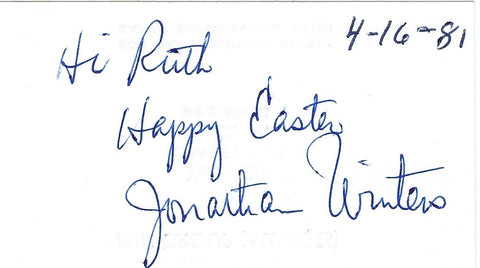 4-16-81
Hi Ruth
Happy Easter
Jonathan Winters